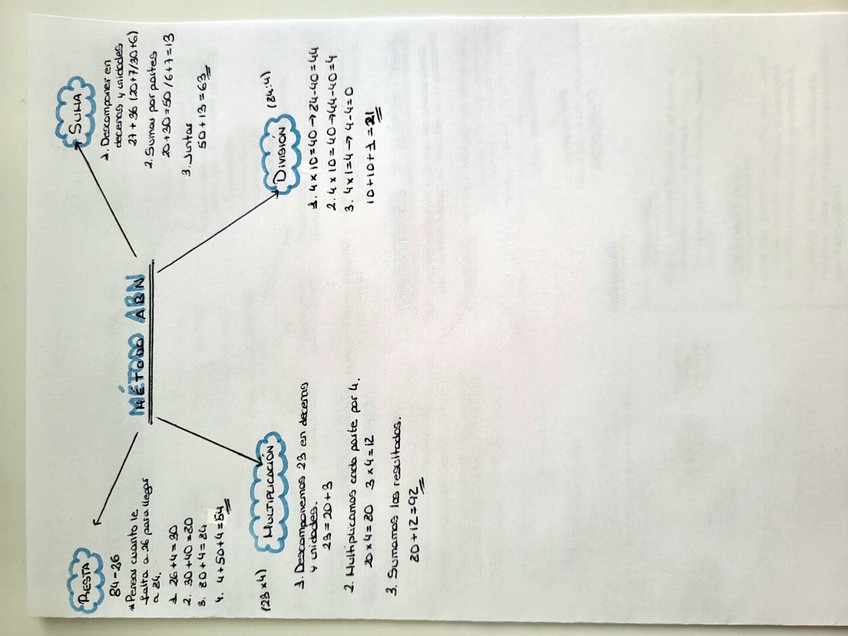 MÉTODO ABN
RESTA
84-26
*Pensar cuanto le
falta a 26 para llegar
a 84.
1. 26+4=30
2. 30+40=80
3. 80+4=84
4. 4+50+4=54
SUMA
1. Descomponer en
decenas y unidades
27+36 (20+7/30+6)
2. Sumar por partes
20+30=50/6+7=13
3. Juntar
50+13=63
MULTIPLICACIÓN
(23x4)
1. Descomponemos 23 en decenas
y unidades.
23=20+3
2. Multiplicamos cada parte por 4.
20x4=80 3x4=12
3. Sumamos los resultados.
80+12=92
DIVISIÓN (84:4)
1. 4x10=40→84-40=44
2. 4x10=40→44-40=4
3. 4x1=4→4-4=0
10+10+1=21